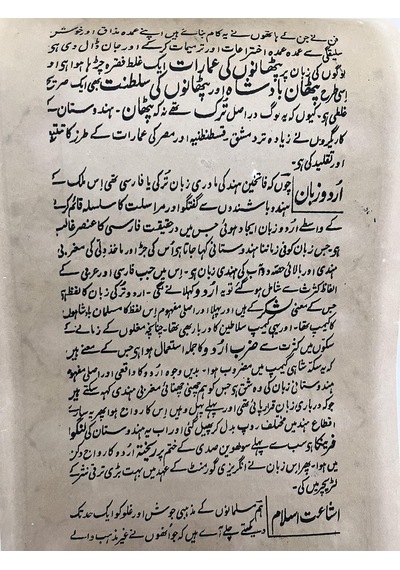 فن نے جن کے ہاتھوں نے یہ کام بنائے ہیں اپنے عمدہ مذاق اور خوش
سلیقگی سے عمدہ عمدہ اختراعات اور ترمیمات کر کے اور جان ڈال دی ہو
لوگوں کی زبان پر پٹھانوں کی عمارات ایک غلط فقرہ چڑھا ہوا ہی او
اسی طرح پٹھان بادشاہ اور پٹھانوں کی سلطنت بھی ایک صریح
غلطی ہو۔ کیوں کہ یہ لوگ در اصل ترک تھے نہ کہ پٹھان۔ ہندوستان کے
کاریگروں نے زیادہ تر دمشق، قسطنطنیہ اور مصر کی عمارات کے طرز کا تتبع
اور تقلید کی ہو۔
اردو زبان
چوں کہ فاتحین ہند کی مادری زبان ترکی یا فارسی تھی اس ملک کے
ہندو باشندوں سے گفتگو اور مراسلت کا سلسلہ قائم کرنے
کے واسطے اردو زبان ایجاد ہوئی جس میں درحقیقت فارسی کا عنصر غالب
ہو۔ جس زبان کو فی زماننا ہندوستانی کہا جاتا ہو اُس کی جڑ اور ماخذ دلی کی مغربی
ہندی اور بالائی حصہ دوآب کی ہندی زبان ہو۔ اس میں جب فارسی اور عربی کے
الفاظ کثرت سے شامل ہو گئے تو یہ اردو کہلانے لگی۔ اردو ترکی زبان کا لفظ ہو
جس کے معنی لشکر کے ہیں اور پہلا اور اصلی مفہوم اس لفظ کا مسلمان بادشاہوں
کا کیمپ تھا۔ اور یہی کیمپ سلاطین کا دربار بھی تھا۔ چنانچہ مغلوں کے زمانے کے
سکوں میں کثرت سے ضرب اردو کا جملہ استعمال ہوا ہی جس کے معنے ہیں
کہ یہ سکہ شاہی کیمپ میں مضروب ہوا۔ پس وجود اردو کا واقعی اور اصلی مفہوم
ہندوستانی زبان کی وہ شق ہی جس کو ہم چھنی چھنائی مغربی ہندی کہہ سکتے ہیں
جو کہ درباری زبان قرار پائی تھی اور پہلے پہل دہلی اس کا رواج ہوا پھر یہ سارے
اقطاع ہند میں مختلف روپ بدل کر پھیل گئی اور اب یہ ہندوستان کی لنگوا
فرینکا ہو سب سے پہلے سولھویں صدی کے ختم پر ریختۂ اردو کا رواج دکن
میں ہوا۔ پھر اس زبان نے انگریزی گورنمنٹ کے عہد میں بہت بڑی ترقی نثر کے
لٹریچر میں کی۔
اشاعت اسلام
ہم مسلمانوں کے مذہبی جوش اور غلو کو ایک حد تک
دیکھتے چلے آئے ہیں کہ جو انھوں نے غیر مذہب والے